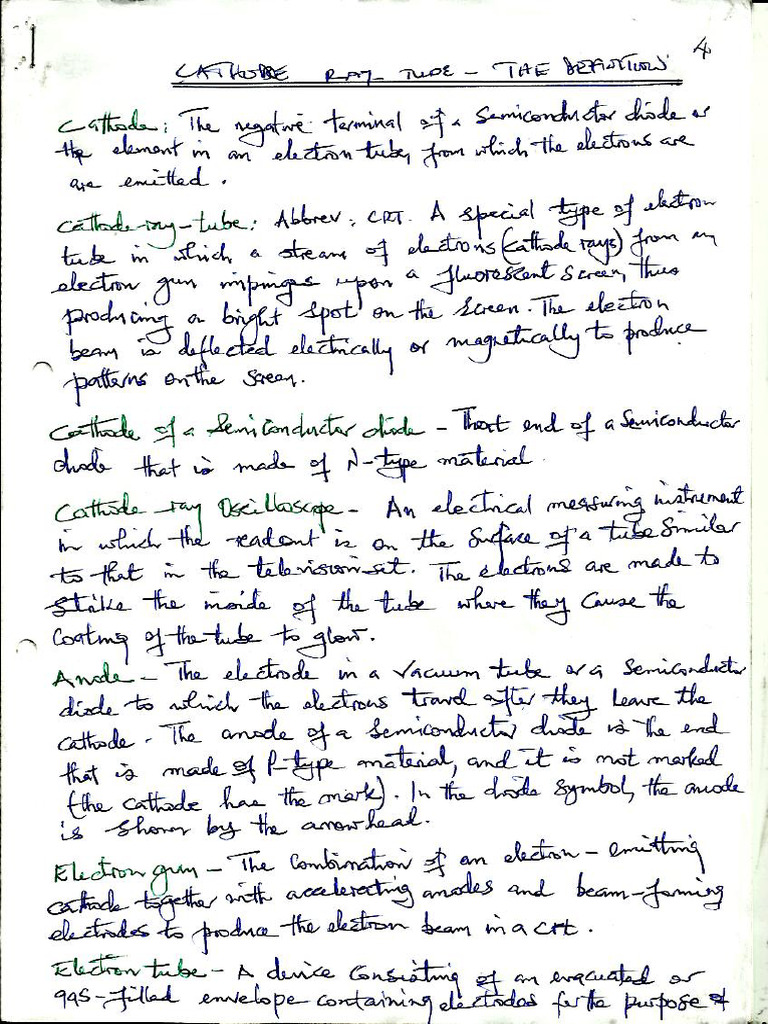 4
CATHODE RAY TUBE - THE DEFINITIONS
Cathode: The negative terminal of a Semiconductor diode or
the element in an electron tube, from which the electrons are
are emitted.
Cathode-ray-tube: Abbrev: CRT. A special type of electron
tube in which a stream of electrons (cathode rays) from an
electron gun impinges upon a fluorescent screen, thus
producing a bright spot on the screen. The electron
beam is deflected electrically or magnetically to produce
patterns on the screen.
Cathode of a Semiconductor diode - That end of a Semiconductor
diode that is made of N-type material
Cathode ray Oscilloscope - An electrical measuring instrument
in which the readout is on the surface of a tube similar
to that in the television set. The electrons are made to
strike the inside of the tube where they cause the
coating of the tube to glow.
Anode - The electrode in a vacuum tube or a Semiconductor
diode to which the electrons travel after they leave the
cathode. The anode of a Semiconductor diode is the end
that is made of P-type material, and it is not marked
(the cathode has the mark). In the diode symbol, the anode
is shown by the arrowhead.
Electron gun - The combination of an electron-emitting
cathode together with accelerating anodes and beam-forming
electrodes to produce the electron beam in a CRT.
Electron tube - A device consisting of an evacuated or
gas-filled envelope containing electrodes for the purpose of